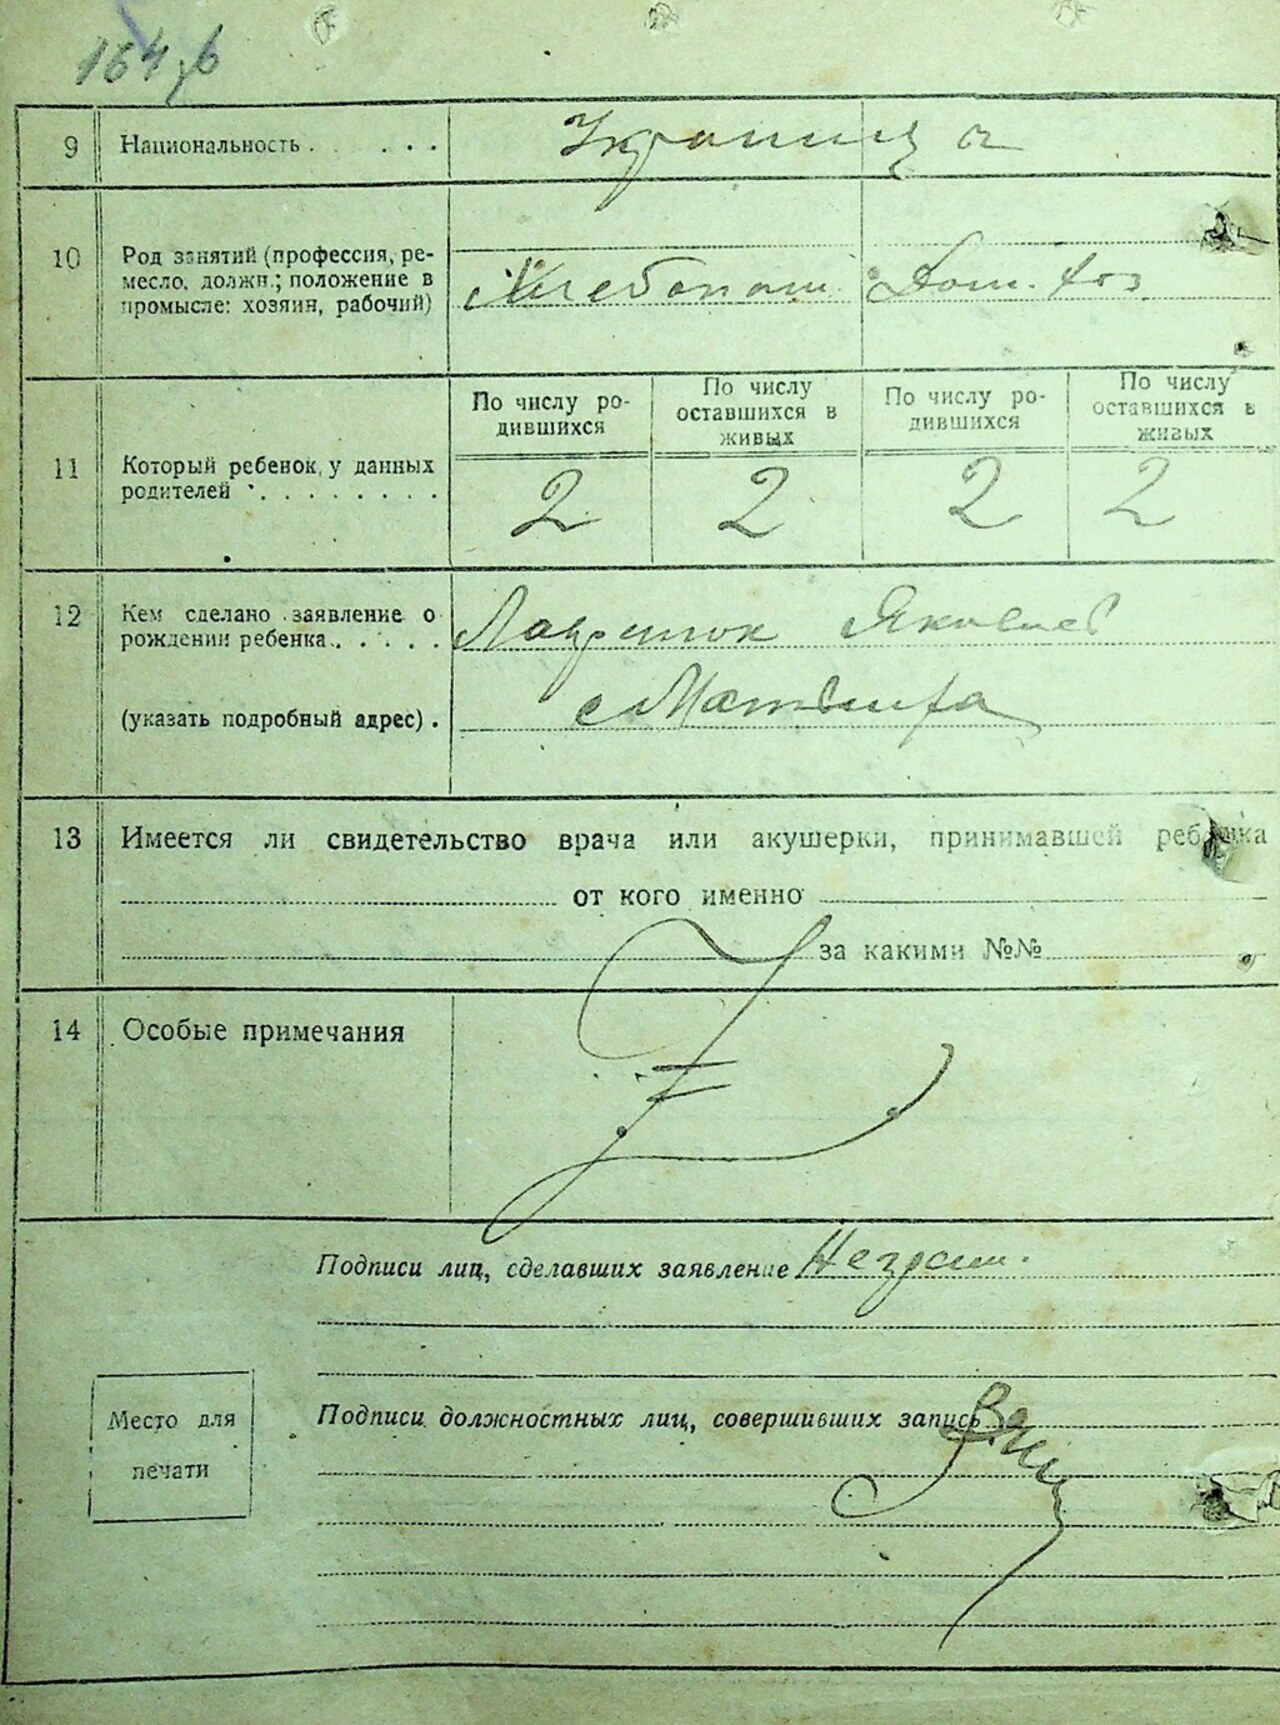 9 Национальность . . . . . Украинца
10 Род занятий (профессия, ре-
месло, должн.; положение в
промысле: хозяин, рабочий)
Хлебопаш. Дом. хоз
11 Который ребенок у данных
родителей . . . . . . . . .
По числу ро-
дившихся
По числу
оставшихся в
живых
По числу ро-
дившихся
По числу
оставшихся в
живых
2 2 2 2
12 Кем сделано заявление о
рождении ребенка . . . . .
Яков
(указать подробный адрес) .
с
13 Имеется ли свидетельство врача или акушерки, принимавшей ребенка
от кого именно
за какими №№
14 Особые примечания
Подписи лиц, сделавших заявление Неграм.
Подписи должностных лиц, совершивших запись
Место для
печати